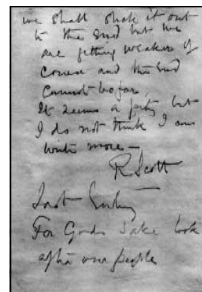 we shall stick it out
to the end but we
are getting weaker of
course and the end
cannot be far.
It seems a pity but
I do not think I can
write more—
R. Scott
Last Entry
For Gods sake look
after our people